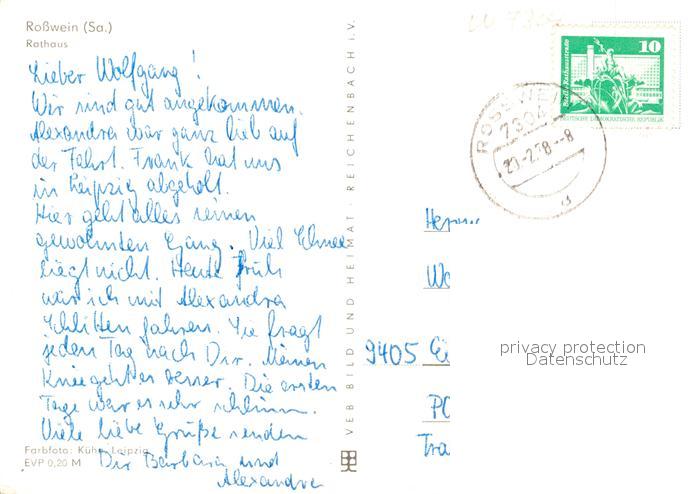 Roßwein (Sa.)
Rathaus
Lieber Wolfgang!
Wir sind gut angekommen.
Alexandra war ganz lieb auf
der Fahrt. Frank hat uns
in Leipzig abgeholt.
Hier geht alles seinen
gewohnten Gang. Viel Schnee
liegt nicht. Heute früh
war ich mit Alexandra
Schlitten fahren. Sie fragt
jeden Tag nach Dir. Meinen
Knie geht es besser. Die ersten
Tage war es sehr schlimm.
Viele liebe Grüße senden
Dir Barbara und
Alexandra
Farbfoto: Kühn, Leipzig
EVP 0,20 M
VEB BILD UND HEIMAT · REICHENBACH i.V.
10
Berlin, Rathausstraße
DEUTSCHE DEMOKRATISCHE REPUBLIK
ROSSWEIN
7304
20.-2.78.--8
d
Herrn
Wo
9405
PO
Tra
privacy protection
Datenschutz